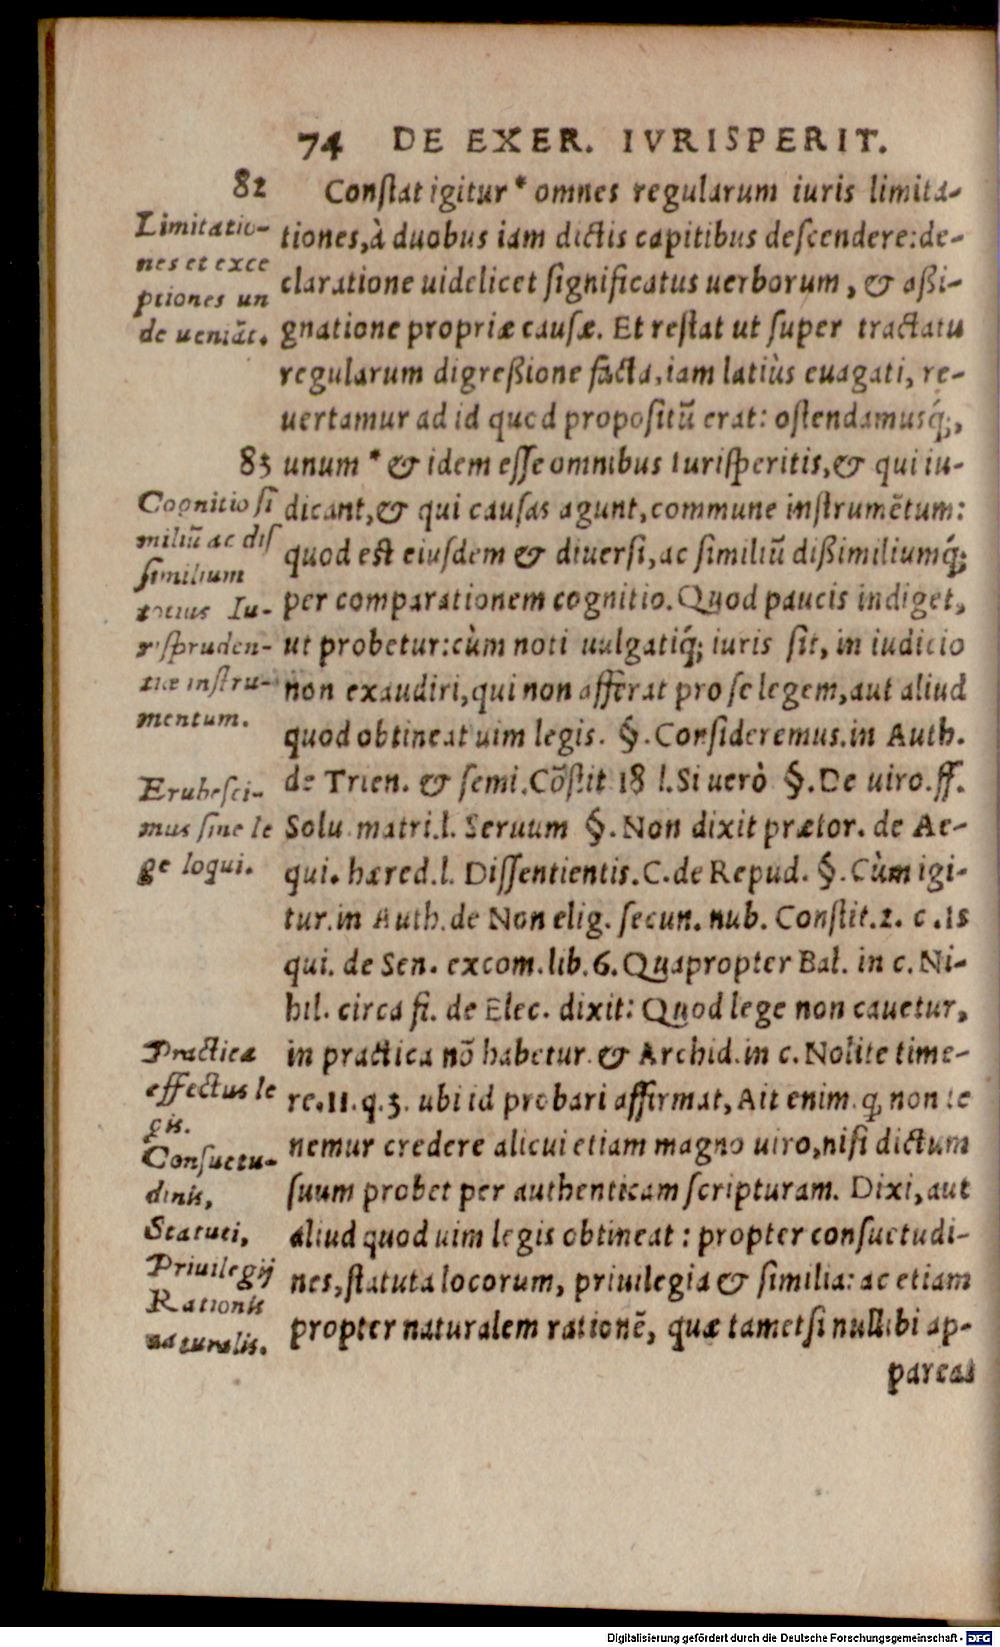 74 DE EXER. IVRISPERIT.
82
Conſtat igitur * omnes regularum iuris limita-
tiones, à duobus iam dictis capitibus deſcendere: de-
claratione uidelicet ſignificatus uerborum, & aßi-
gnatione propriæ cauſæ. Et reſtat ut ſuper tractatu
regularum digreßione facta, iam latiùs euagati, re-
uertamur ad id quod propoſitũ erat: oſtendamusq́;,
83 unum * & idem eſſe omnibus Iuriſperitis, & qui iu-
dicant, & qui cauſas agunt, commune inſtrumẽtum:
quod est eiuſdem & diuerſi, ac ſimiliũ dißimiliumq́;
per comparationem cognitio. Quod paucis indiget,
ut probetur: cùm noti uulgatiq́; iuris ſit, in iudicio
non exaudiri, qui non afferat pro ſe legem, aut aliud
quod obtineat uim legis. §. Conſideremus. in Auth.
de Trien. & ſemi. Cõſtit 18 l. Si uerò §. De uiro. ff.
Solu matri. l. Seruum §. Non dixit prætor. de Ac-
qui. hæred. l. Diſſentientis. C. de Repud. §. Cùm igi-
tur. in Auth. de Non elig. ſecun. nub. Conſtit. 2. c. Is
qui. de Sen. excom. lib. 6. Quapropter Bal. in c. Ni-
hil. circa fi. de Elec. dixit: Quod lege non cauetur,
in practica nõ habetur. & Archid. in c. Nolite time-
re. 11. q. 3. ubi id probari affirmat, Ait enim. ꝗ non te
nemur credere alicui etiam magno uiro, niſi dictum
ſuum probet per authenticam ſcripturam. Dixi, aut
aliud quod uim legis obtineat: propter conſuetudi-
nes, ſtatuta locorum, priuilegia & ſimilia: ac etiam
propter naturalem rationẽ, quæ tametſi nullibi ap-
pareat
Limitatio-
nes et exce
ptiones un
de ueniãt.
Cognitio ſi
miliũ ac diſ
ſimilium
totius Iu-
riſpruden-
tiæ inſtru-
mentum.
Erubeſci-
mus ſine le
ge loqui.
Practica
effectus le
gis.
Conſuetu-
dinis,
Statuti,
Priuilegij
Rationis
naturalis.
Digitalisierung gefördert durch die Deutsche Forschungsgemeinschaft - DFG